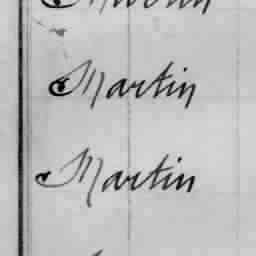 Martin
Martin